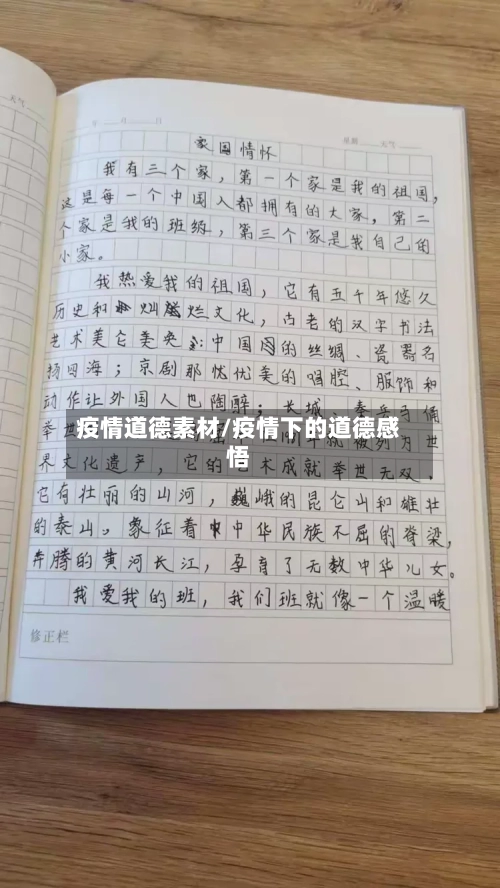 天气
年 月 日
星期 天气
家国情怀
我有三个家，第一个家是我的祖国，
这是每一个中国人都拥有的大家，第二
个家是我的班级，第三个家是我自己的
小家。
我热爱我的祖国，它有五千年悠久
历史和灿烂文化，古老的汉字书法
艺术美仑美奂；中国的丝绸、瓷器名
扬四海；京剧那优美的唱腔、服饰和
动作让外国人也陶醉；长城、秦兵马俑
举世
疫情道德素材/疫情下的道德感
悟
界文化遗产，它的艺术成就举世无双．
它有壮丽的山河，巍峨的昆仑山和雄壮
的泰山，象征着中华民族不屈的脊梁，
奔腾的黄河长江，孕育了无数中华儿女。
我爱我的班，我们班就像一个温暖
修正栏